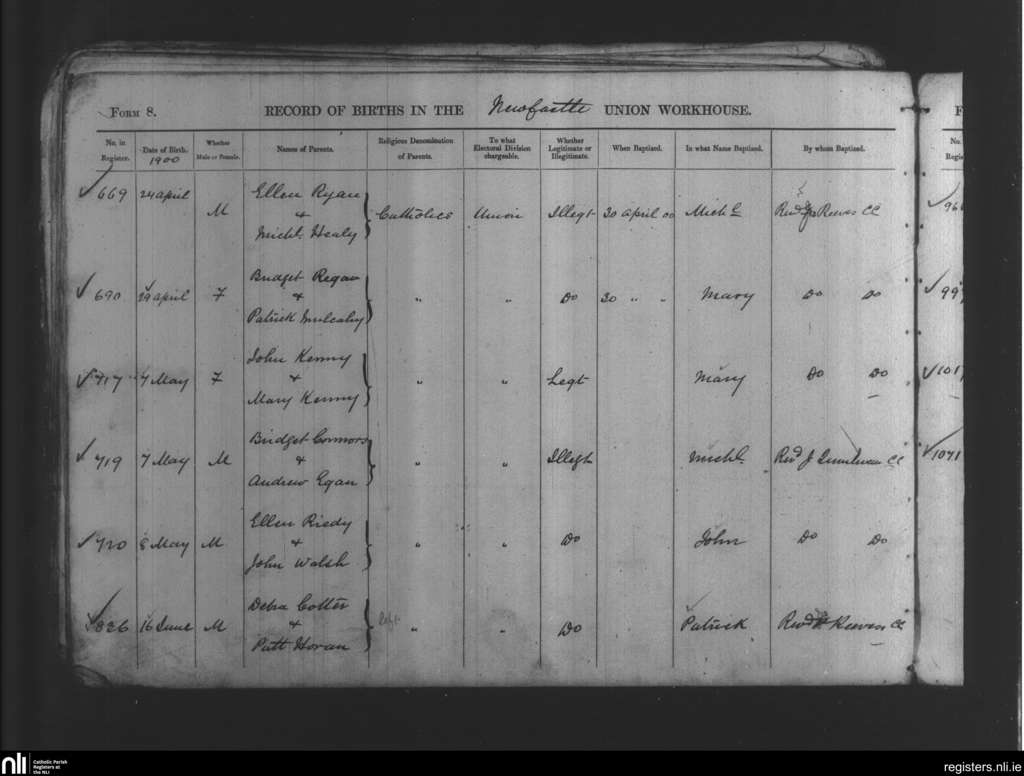 FORM 8. RECORD OF BIRTHS IN THE Newcastle UNION WORKHOUSE.
No. in Register. Date of Birth. 1900 Whether Male or Female. Names of Parents. Religious Denomination of Parents. To what Electoral Division chargeable. Whether Legitimate or Illegitimate. When Baptized. In what Name Baptized. By whom Baptized.
Ellen Ryan
669 24 april M & Catholics Union Illegt 30 april 00 Michl Revd Reeves CC
Michl Healy
Bridget Regan
690 29 april F & " " Do 30 " " Mary Do Do
Patrick Mulcahy
John Kenny
717 7 May F & " " Legt Mary Do Do
Mary Kenny
Bridget Connors
719 7 May M & " " Illegt Michl Revd J CC
Andrew Egan
Ellen Riedy
720 8 May M & " " Do John Do Do
John Walsh
Debra Cotter
826 16 June M & " " Do Patrick Revd Reeves CC
Patt Horan
F
No.
Regis
96
99
101
1071
nli
Catholic Parish
Registers at
the NLI
registers.nli.ie